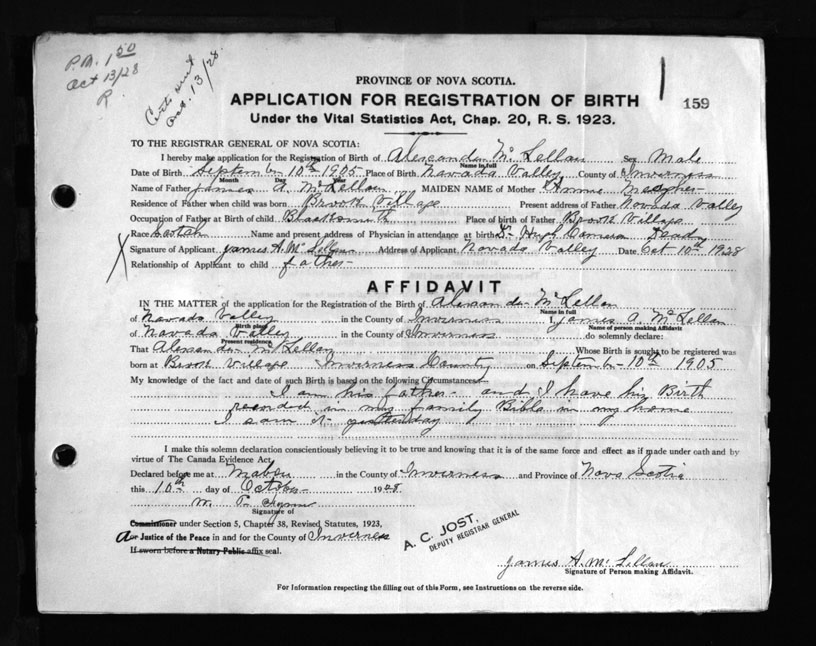 P.M. 1 50
Oct 13/28
R.
Certs sent
Oct. 13/28.
159
PROVINCE OF NOVA SCOTIA.
APPLICATION FOR REGISTRATION OF BIRTH
Under the Vital Statistics Act, Chap. 20, R. S. 1923.
TO THE REGISTRAR GENERAL OF NOVA SCOTIA:
I hereby make application for the Registration of Birth of Alexander Mc Lellan Sex Male
Name in full
Date of Birth Septem br 10th 1905 Place of Birth Navada Valley County of Inverness
Month Day Year
Name of Father James A. McLellan MAIDEN NAME of Mother Annie
Residence of Father when child was born Brook Village Present address of Father Navada Valley
Occupation of Father at Birth of child Blacksmith Place of birth of Father Brook Village
Race Scotch Name and present address of Physician in attendance at birth Dr Hugh Cameron Dead
Signature of Applicant James A. Mc Lellan Address of Applicant Navada Valley Date Oct 10th 1928
Relationship of Applicant to child father
AFFIDAVIT
IN THE MATTER of the application for the Registration of the Birth of Alexander McLellan
Name in full
of Navada Valley in the County of Inverness I, James A. McLellan
Birth place Name of person making Affidavit
of Navada Valley in the County of Inverness do solemnly declare:
Present residence
That Alexander McLellan Whose Birth is sought to be registered was
born at Brook Village Inverness County on Septem br 10th 1905
My knowledge of the fact and date of such Birth is based on the following Circumstances
I am his father and I have his Birth
recorded in my family Bible in my home
I saw it yesterday
I make this solemn declaration conscientiously believing it to be true and knowing that it is of the same force and effect as if made under oath and by
virtue of The Canada Evidence Act.
Declared before me at Mabou in the County of Inverness and Province of Nova Scotia
this 10th day of October 1928
Signature of
Commissioner under Section 5, Chapter 38, Revised Statutes, 1923,
A or Justice of the Peace in and for the County of Inverness
If sworn before a Notary Public affix seal.
A. C. JOST.
DEPUTY REGISTRAR GENERAL
James A. Mc Lellan
Signature of Person making Affidavit.
For Information respecting the filling out of this Form, see Instructions on the reverse side.